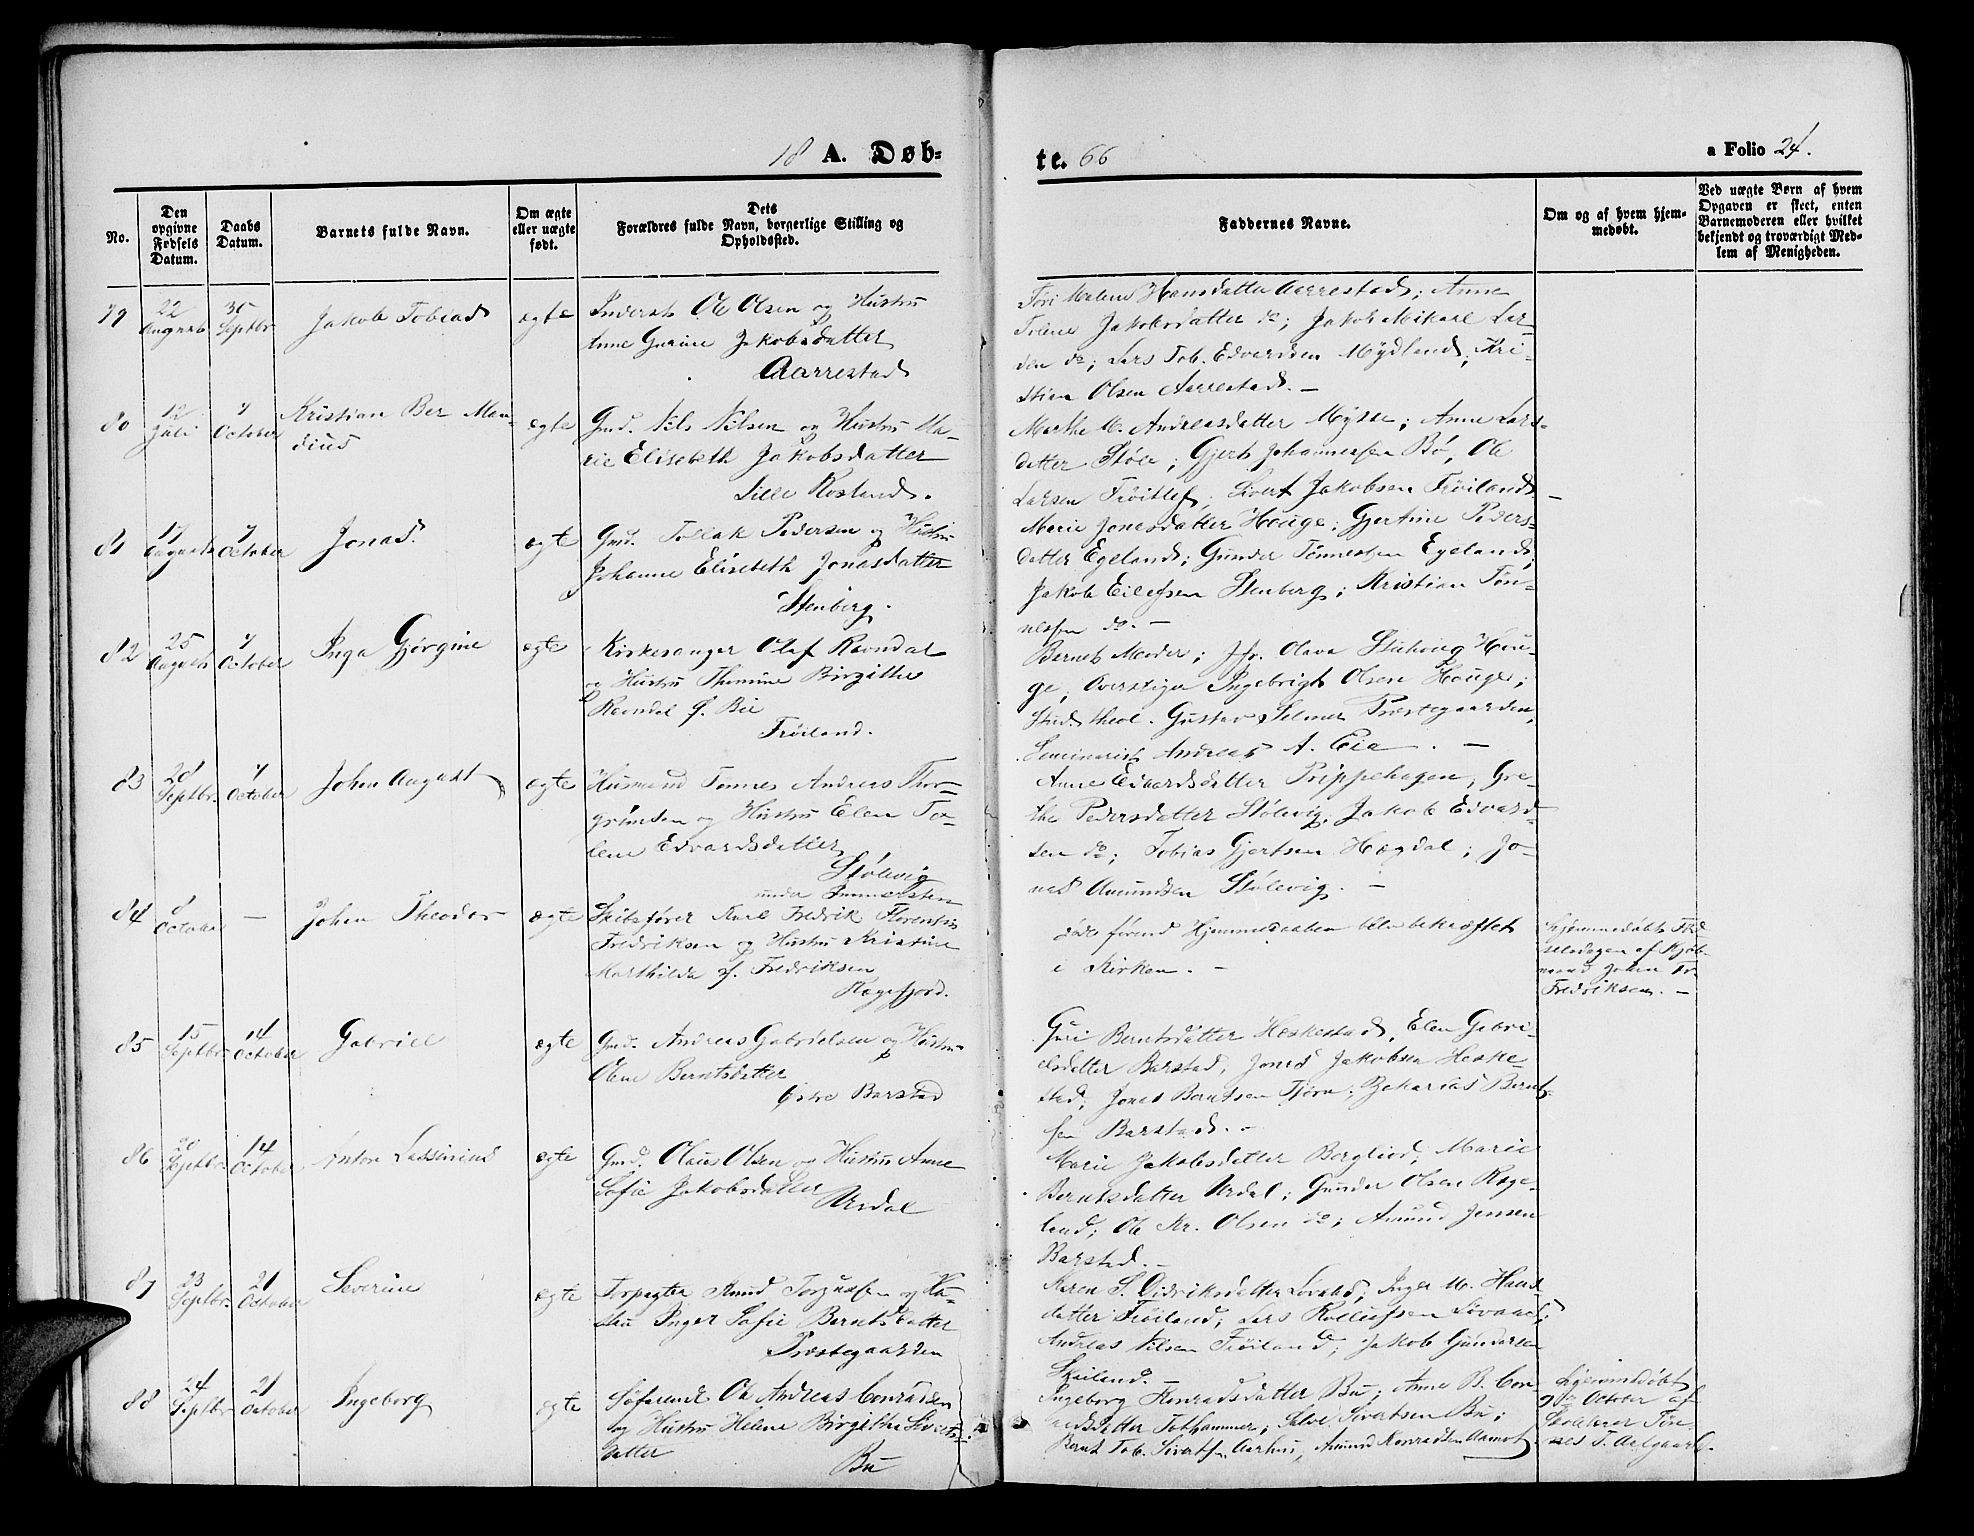 18 A. Døb-
te. 66
a Folio 24.
No.
Den opgivne Fødsels Datum.
Daabs Datum.
Barnets fulde Navn.
Om ægte eller uægte født.
Dets Forældres fulde Navn, borgerlige Stilling og Opholdssted.
Faddernes Navne.
Om og af hvem hjemmedøbt.
Ved uægte Børn af hvem Opgaven er skeet, enten Barnemoderen eller hvilket bekjendt og troværdigt Medlem af Menigheden.
79 22 August 30 Septbr. Jakob Tobias ægte Inderst Ole Olsen og Hustru
Anne Gurine Jakobsdatter
Aarrestad
Malene Hansdatter Aarrestad; Anne
Tolene Jakobsdatter do; Jakob Mikael Lar-
sen do; Lars Tob. Edvardsen Mydland; Kri-
stian Olsen Aarrestad. —
80 12 Juli 7 October Kristian Ber Man-
dius
ægte Gmd. Nils Nilsen og Hustru Ma-
rie Elisebeth Jakobsdatter
Lille Rosland.
Marthe M. Andreasdatter Mysse; Anne Lars-
datter Støle; Gjert Johannessen Bø, Ole
Larsen Trøitlef, Sivert Jakobsen Frøiland —
81 17 August 7 October Jonas. ægte Gmd. Tollak Pedersen og Hustru
Johanne Elisebeth Jonasdatter
Stenberg.
Marie Jonasdatter Houge; Gjertine Peders-
datter Egeland; Gunder Tønnessen Egeland;
Jakob Eilefsen Stenberg; Kristian Tøn-
nessen do. —
82 25 August 7 October Inga Gjørgine ægte Kirkesanger Olaf Ravndal
og Hustru Thomine Birgithe
Ravndal f. Bie
Frøiland.
Barnets Moder; Jfr. Olava Hou-
ge, Ingebrigt Olsen Houge;
Stud. theol. Gustav Selmer Præstegaarden,
Seminarist Andreas A. Eie. —
83 20 Septbr. 7 October Johan August ægte Husmand Tønnes Andreas Thor-
grimsen og Hustru Elen To-
lene Edvardsdatter
Stølevig
Anne Edvardsdatter Prippehagen, Gre-
the Pedersdatter Stølevig, Jakob Edvard-
sen do; Tobias Gjertsen Hægdal; Jo-
nas Amundsen Stølevig. —
84 8 October — Johan Theodor ægte under
Skibsfører Karl Fredrik Florentin
Fredriksen og Hustru Kristine
Marthilde f. Fredriksen
Rægefjord.
døde førend Hjemmedaaben blev bekræftet
i Kirken. —
Hjemmedøbt Fød-
selsdagen af Kjøb-
mand Johan Fr.
Fredriksen. —
85 15 Septbr. 14 October Gabriel ægte Gmd. Andreas Gabrielsen og Hustru
Olene Berntsdatter
Østre Barstad
Guri Berntsdatter Heskestad, Elen Gabri-
elsdatter Barstad, Jonas Jakobsen Heske-
stad; Jonas Berntsen Tjørn; Zakarias Bernt-
sen Barstad. —
86 20 Septbr. 14 October Anton Lassinius ægte Gmd. Olaus Olsen og Hustru Anne
Sofie Jakobsdatter
Urdal
Marie Jakobsdatter Berglied, Marie
Berntsdatter Urdal; Gunder Olsen Rege-
land; Ole Kr. Olsen do; Amund Jensen
Barstad. —
87 23 Septbr. 21 October Severine ægte Forpagter Knud Torgersen og Hu-
stru Inger Sofie Berntsdatter
Præstegaarden
Karen S. Didriksdatter Løvaas; Inger M. Hans-
datter Frøiland; Lars Rollufsen Løvaas;
Andreas Nilsen Frøiland; Jakob Gundersen
Skeiland. —
88 24 Septbr. 21 October Ingeborg ægte Søfarende Ole Andreas Conradsen
og Hustru Helene Birgithe Siverts-
datter
Bu
Ingeborg Konradsdatter Bu; Anne B. Con-
radsdatter Tothammer; Salve Sivertsen Bu;
Bernt Tob. Sivertsen Aarhus, Amund Konradsen Aamot.
Hjemmedøbt
9de October af
Skolelærer Tøn-
nes T. Aalgaard.